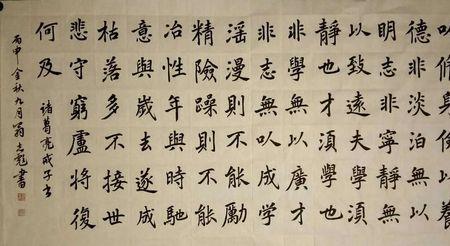 以脩身儉以養
德非淡泊無以
明志非寧靜無
以致遠夫學湏
靜也才湏學也
非學無以廣才
非志無以成学
滛漫則不能勵
精險躁則不能
冶性年與時馳
意與歲去遂成
枯落多不接世
悲守窮廬將復
何及
諸葛亮戒子書
丙申金秋九月翁志彪書